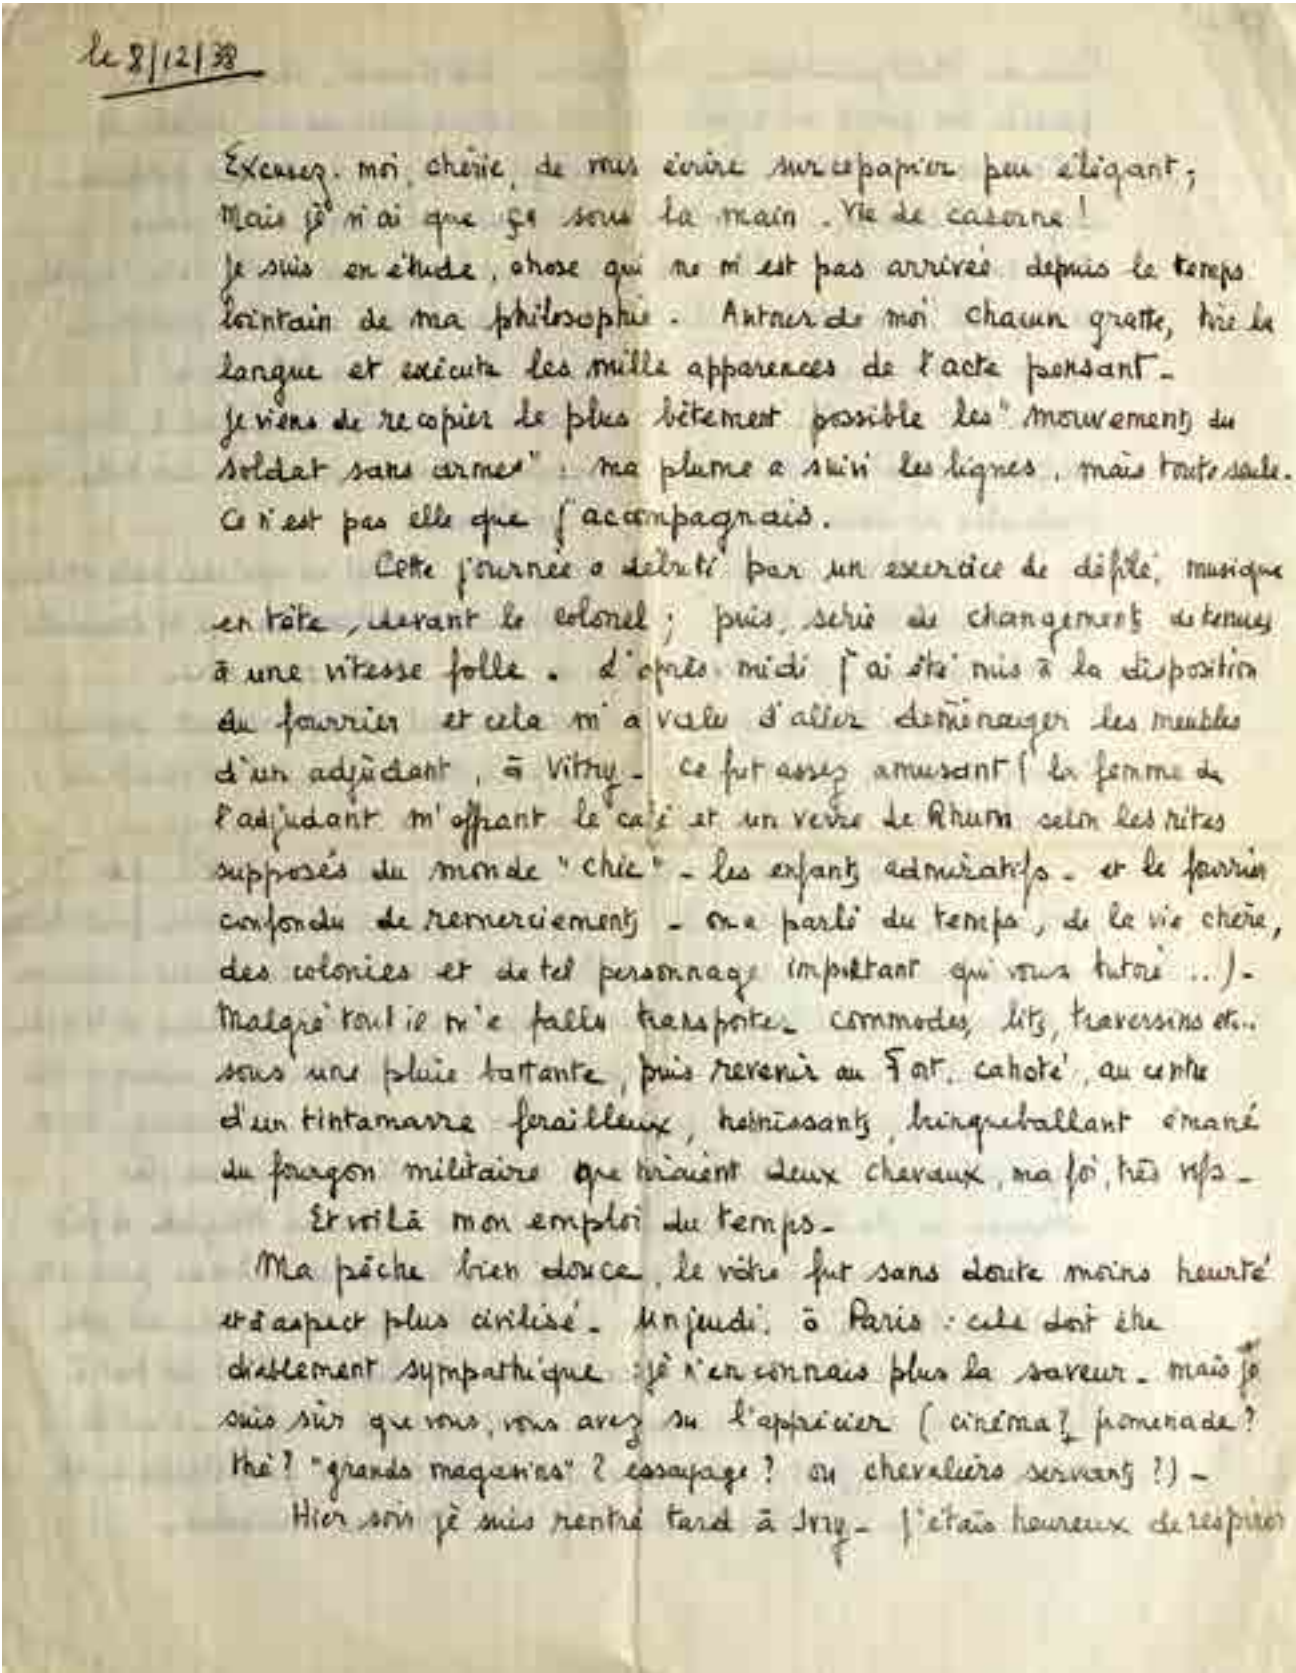 le 8/12/38
Excusez-moi, chérie, de vous écrire sur ce papier peu élégant;
Mais je n'ai que ça sous la main. Vie de caserne!
Je suis en étude, chose qui ne m'est pas arrivée depuis le temps
lointain de ma philosophie. Autour de moi chacun gratte, tire la
langue et exécute les mille apparences de l'acte pensant -
Je viens de recopier le plus bêtement possible les "mouvements du
soldat sans armes": ma plume a suivi les lignes, mais toute seule.
Ce n'est pas elle que j'acompagnais.
Cette journée a débuté par un exercice de défilé, musique
en tête, devant le colonel; puis, série de changements de tenues
à une vitesse folle. L'après-midi j'ai été mis à la disposition
du fourrier et cela m'a valu d'aller déménager les meubles
d'un adjudant, à Vitry - ce fut assez amusant (la femme de
l'adjudant m'offrant le café et un verre de Rhum selon les rites
supposés du monde "chic" - les enfants admiratifs - et le fourrier
confondu de remerciements - on a parlé du temps, de la vie chère,
des colonies et de tel personnage important qui vous tutoie ...) -
Malgré tout il m'a fallu transporter commodes, lits, traversins etc..
sous une pluie battante, puis revenir au Fort, cahoté, au centre
d'un tintamarre ferailleux, hennissants, bringueballant émané
du fourgon militaire que tiraient deux chevaux, ma foi, très vifs -
Et voilà mon emploi du temps -
Ma pêche bien douce, le vôtre fut sans doute moins heurté
et d'aspect plus civilisé - Un jeudi, à Paris: cela doit être
diablement sympathique: je n'en connais plus la saveur - mais je
suis sûr que vous, vous avez su l'apprécier (cinéma? promenade?
thé? "grands magasins"? essayage? ou chevaliers servants?) -
Hier soir je suis rentré tard à Ivry - j'étais heureux de respirer